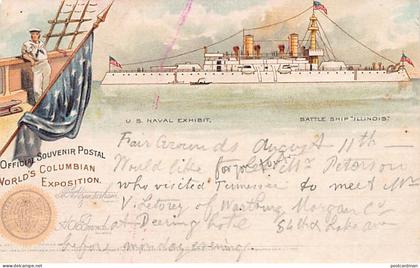 U.S. NAVAL EXHIBIT.
BATTLE SHIP "ILLINOIS."
OFFICIAL SOUVENIR POSTAL
WORLD'S COLUMBIAN
EXPOSITION.
Fair Grounds August 11th
Would like for Mr Peterson
who visited Tennessee to meet Mr
V. of Wartburg Morgan Co
at Deering hotel 56th & Lake ave
before monday evening.
postcardman